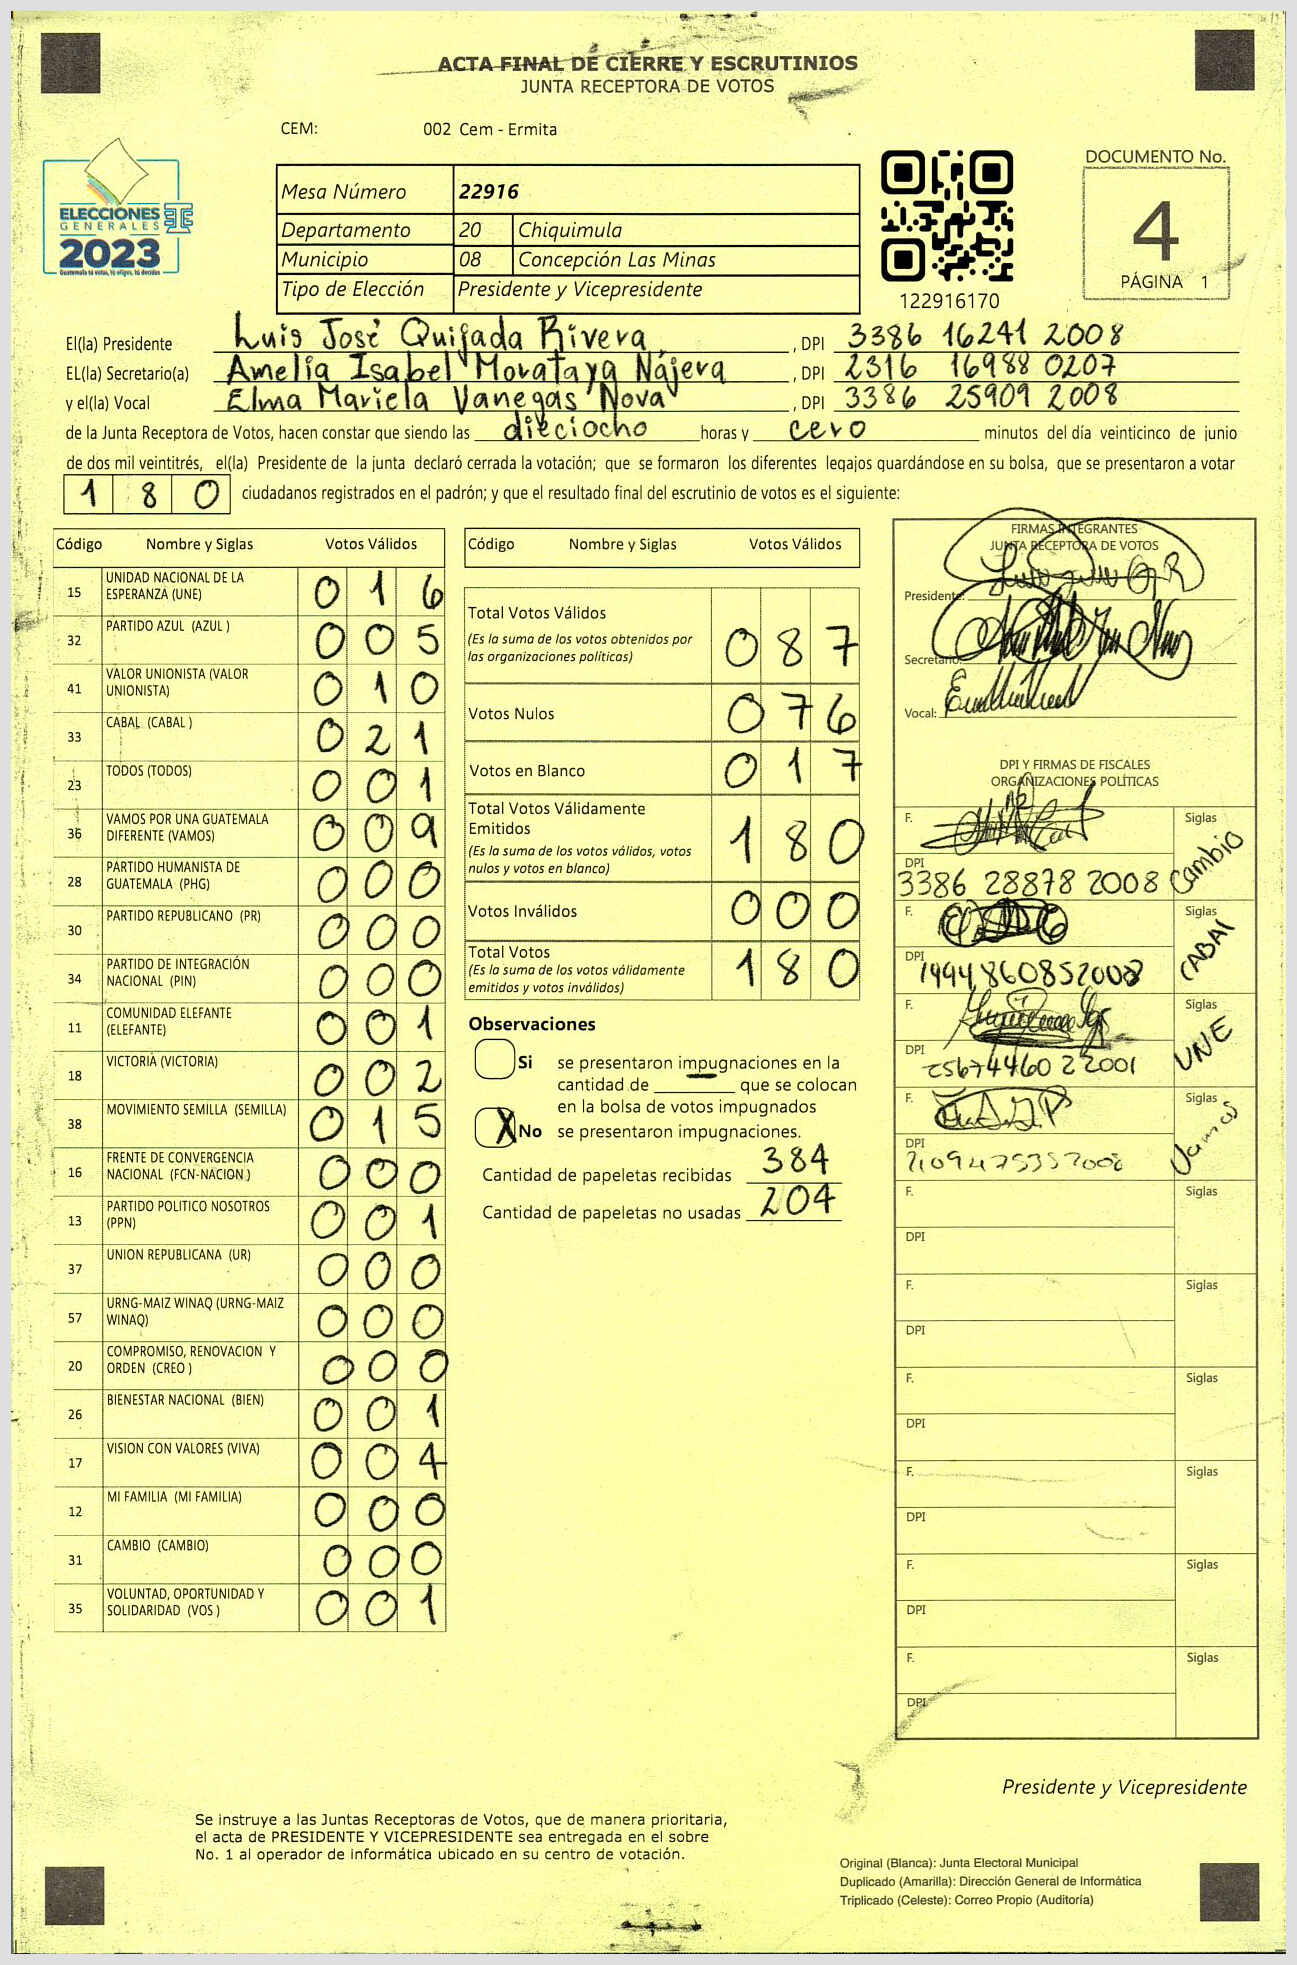 ACTA FINAL DE CIERRE Y ESCRUTINIOS
JUNTA RECEPTORA DE VOTOS
CEM: 002 Cem - Ermita
ELECCIONES
GENERALES
2023
Guatemala tú votas, tú eliges, tú decides
Mesa Número 22916
Departamento 20 Chiquimula
Municipio 08 Concepción Las Minas
Tipo de Elección Presidente y Vicepresidente
122916170
DOCUMENTO No.
4
PÁGINA 1
El(la) Presidente Luis José Quijada Rivera, DPI 3386 16241 2008
EL(la) Secretario(a) Amelia Isabel Morataya Nájera, DPI 2316 16988 0207
y el(la) Vocal Elma Mariela Vanegas Nova, DPI 3386 25909 2008
de la Junta Receptora de Votos, hacen constar que siendo las dieciocho horas y cero minutos del día veinticinco de junio
de dos mil veintitrés, el(la) Presidente de la junta declaró cerrada la votación; que se formaron los diferentes legajos guardándose en su bolsa, que se presentaron a votar
180 ciudadanos registrados en el padrón; y que el resultado final del escrutinio de votos es el siguiente:
Código Nombre y Siglas Votos Válidos
15 UNIDAD NACIONAL DE LA ESPERANZA (UNE) 016
32 PARTIDO AZUL (AZUL ) 005
41 VALOR UNIONISTA (VALOR UNIONISTA) 010
33 CABAL (CABAL ) 021
23 TODOS (TODOS) 001
36 VAMOS POR UNA GUATEMALA DIFERENTE (VAMOS) 009
28 PARTIDO HUMANISTA DE GUATEMALA (PHG) 000
30 PARTIDO REPUBLICANO (PR) 000
34 PARTIDO DE INTEGRACIÓN NACIONAL (PIN) 000
11 COMUNIDAD ELEFANTE (ELEFANTE) 001
18 VICTORIA (VICTORIA) 002
38 MOVIMIENTO SEMILLA (SEMILLA) 015
16 FRENTE DE CONVERGENCIA NACIONAL (FCN-NACION ) 000
13 PARTIDO POLITICO NOSOTROS (PPN) 001
37 UNION REPUBLICANA (UR) 000
57 URNG-MAIZ WINAQ (URNG-MAIZ WINAQ) 000
20 COMPROMISO, RENOVACION Y ORDEN (CREO ) 000
26 BIENESTAR NACIONAL (BIEN) 001
17 VISION CON VALORES (VIVA) 004
12 MI FAMILIA (MI FAMILIA) 000
31 CAMBIO (CAMBIO) 000
35 VOLUNTAD, OPORTUNIDAD Y SOLIDARIDAD (VOS ) 001
Código Nombre y Siglas Votos Válidos
Total Votos Válidos 087
(Es la suma de los votos obtenidos por
las organizaciones políticas)
Votos Nulos 076
Votos en Blanco 017
Total Votos Válidamente
Emitidos 180
(Es la suma de los votos válidos, votos
nulos y votos en blanco)
Votos Inválidos 000
Total Votos 180
(Es la suma de los votos válidamente
emitidos y votos inválidos)
Observaciones
Si se presentaron impugnaciones en la
cantidad de que se colocan
en la bolsa de votos impugnados
X No se presentaron impugnaciones.
Cantidad de papeletas recibidas 384
Cantidad de papeletas no usadas 204
FIRMAS INTEGRANTES
JUNTA RECEPTORA DE VOTOS
Presidente:
Secretario:
Vocal:
DPI Y FIRMAS DE FISCALES
ORGANIZACIONES POLÍTICAS
F. Siglas Cambio
DPI 3386 28878 2008
F. Siglas CABAl
DPI 1494860852008
F. Siglas UNE
DPI
F. Siglas Vamos
DPI
F. Siglas
DPI
F. Siglas
DPI
F. Siglas
DPI
F. Siglas
DPI
F. Siglas
DPI
F. Siglas
DPI
Presidente y Vicepresidente
Se instruye a las Juntas Receptoras de Votos, que de manera prioritaria,
el acta de PRESIDENTE Y VICEPRESIDENTE sea entregada en el sobre
No. 1 al operador de informática ubicado en su centro de votación.
Original (Blanca): Junta Electoral Municipal
Duplicado (Amarilla): Dirección General de Informática
Triplicado (Celeste): Correo Propio (Auditoría)